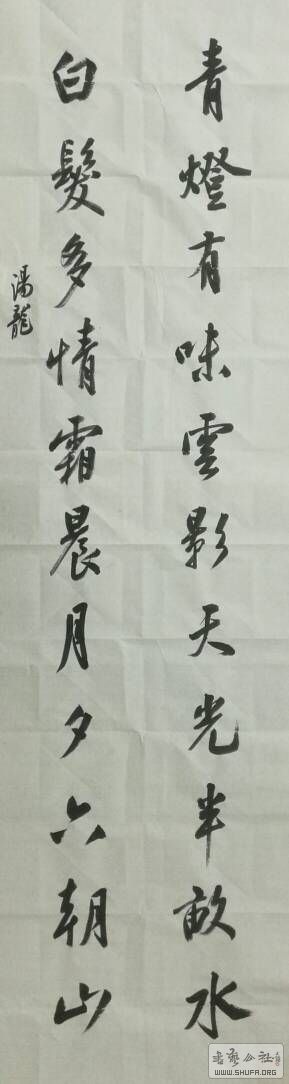 青燈有味雲影天光半畝水
白髮多情霜晨月夕六朝山
湯龍
書藝公社
WWW.SHUFA.ORG